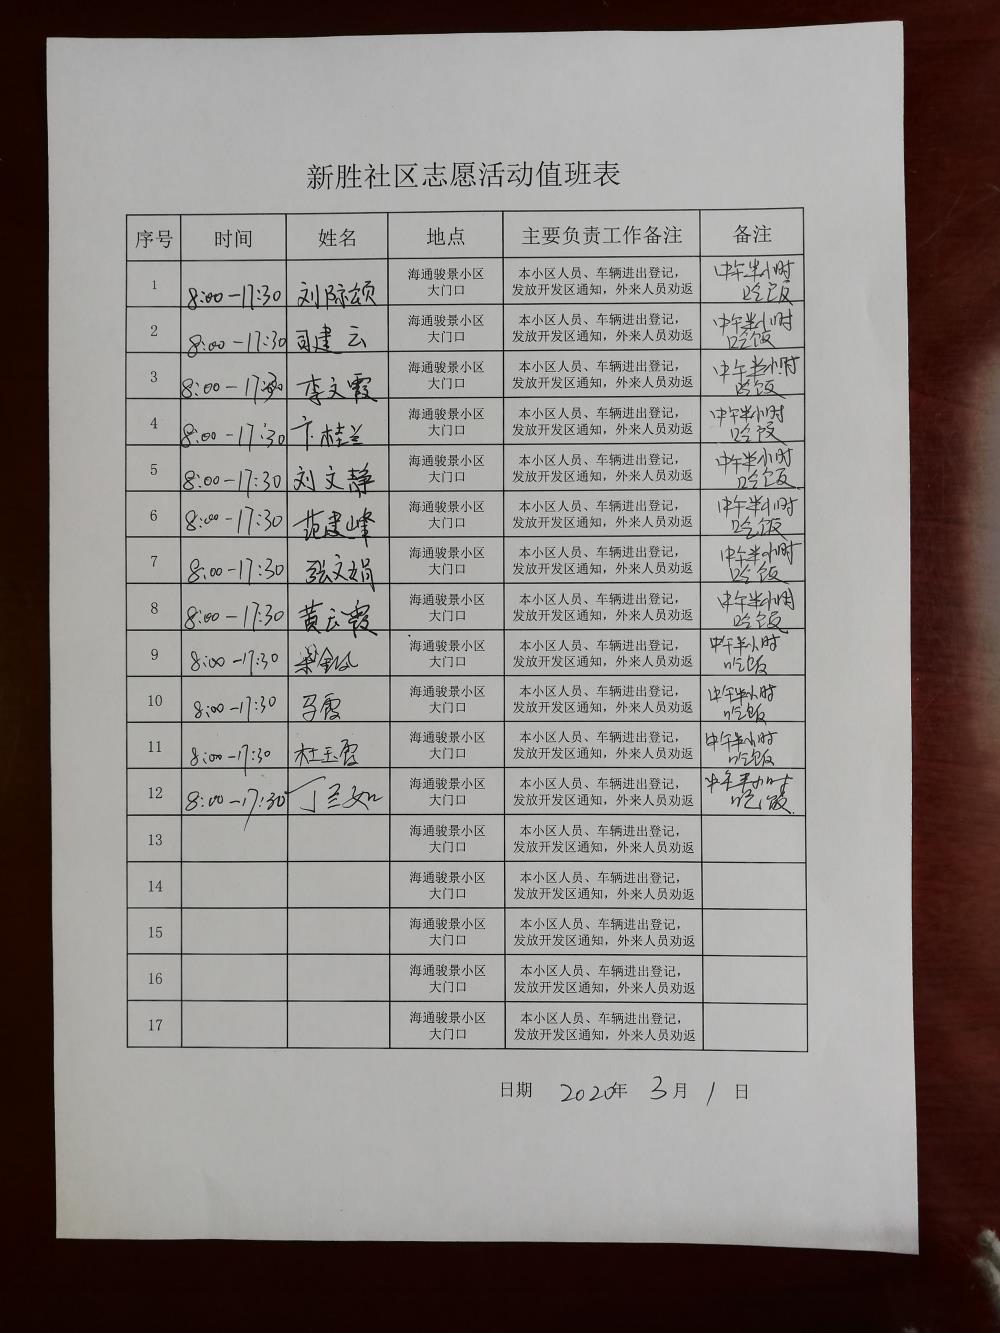 新胜社区志愿活动值班表
序号 时间 姓名 地点 主要负责工作备注 备注
1 8:00-17:30 刘际颂 海通骏景小区 本小区人员、车辆进出登记， 中午半小时
大门口 发放开发区通知，外来人员劝返 吃饭
2 8:00-17:30 司建云 海通骏景小区 本小区人员、车辆进出登记， 中午半小时
大门口 发放开发区通知，外来人员劝返 吃饭
3 8:00-17:30 李文霞 海通骏景小区 本小区人员、车辆进出登记， 中午半小时
大门口 发放开发区通知，外来人员劝返 吃饭
4 8:00-17:30 卞桂兰 海通骏景小区 本小区人员、车辆进出登记， 中午半小时
大门口 发放开发区通知，外来人员劝返 吃饭
5 8:00-17:30 刘文静 海通骏景小区 本小区人员、车辆进出登记， 中午半小时
大门口 发放开发区通知，外来人员劝返 吃饭
6 8:00-17:30 范建峰 海通骏景小区 本小区人员、车辆进出登记， 中午半小时
大门口 发放开发区通知，外来人员劝返 吃饭
7 8:00-17:30 张文娟 海通骏景小区 本小区人员、车辆进出登记， 中午半小时
大门口 发放开发区通知，外来人员劝返 吃饭
8 8:00-17:30 黄云霞 海通骏景小区 本小区人员、车辆进出登记， 中午半小时
大门口 发放开发区通知，外来人员劝返 吃饭
9 8:00-17:30 海通骏景小区 本小区人员、车辆进出登记， 中午半小时
大门口 发放开发区通知，外来人员劝返 吃饭
10 8:00-17:30 海通骏景小区 本小区人员、车辆进出登记， 中午半小时
大门口 发放开发区通知，外来人员劝返 吃饭
11 8:00-17:30 海通骏景小区 本小区人员、车辆进出登记， 中午半小时
大门口 发放开发区通知，外来人员劝返 吃饭
12 8:00-17:30 丁兰如 海通骏景小区 本小区人员、车辆进出登记， 中午半小时
大门口 发放开发区通知，外来人员劝返 吃饭
13 海通骏景小区 本小区人员、车辆进出登记，
大门口 发放开发区通知，外来人员劝返
14 海通骏景小区 本小区人员、车辆进出登记，
大门口 发放开发区通知，外来人员劝返
15 海通骏景小区 本小区人员、车辆进出登记，
大门口 发放开发区通知，外来人员劝返
16 海通骏景小区 本小区人员、车辆进出登记，
大门口 发放开发区通知，外来人员劝返
17 海通骏景小区 本小区人员、车辆进出登记，
大门口 发放开发区通知，外来人员劝返
日期 2020年 3月 1日